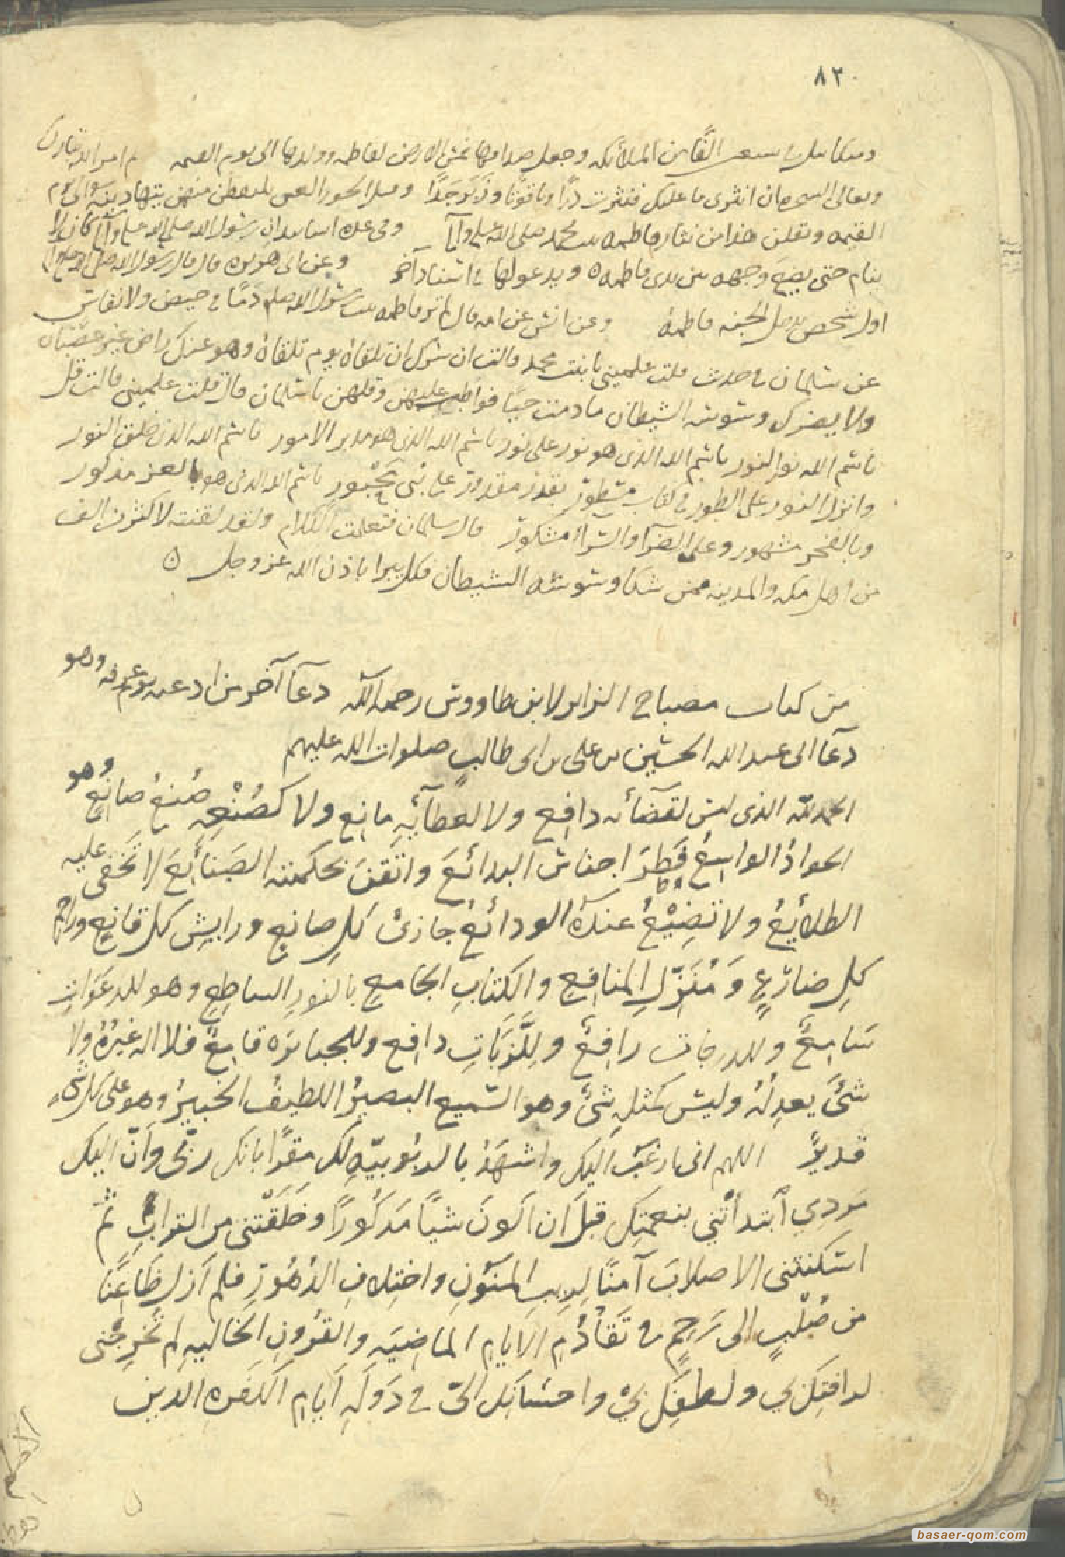 ٨٢٠
وميكائيل في سبعين الفا من الملائكه وجعل صداقها خمس الارض لفاطمه وولدها الى يوم القيمه ثم امر الله تبارك
وتعالى ان انثرى ما عليك فنثرت درا وياقوتا و الحور العين يلتقطن منهن يتهادينه الى يوم
القيمه ويقلن هذا من نثار فاطمه بنت محمد صلى الله عليه وآله وفي عدة اسانيد ان رسول الله صلى الله عليه وآله كان لا
ينام حتى يضع وجهه بين يدى فاطمه ويدعو لها في اسناد آخر وعن ابى هريره قال قال رسول الله صلى الله عليه وآله
اول شخص يدخل الجنه فاطمه وعن انس عن امه قال لم تر فاطمه بنت رسول الله صلعم دما في حيض ولا نفاس
عن سلمان في حديث قلت علميني يا بنت محمد قالت ان سرك ان تلقاه يوم تلقاه وهو عنك راض غير غضبان
ولا يضرك وسوسه الشيطان ما دمت حيا فواظب عليهن وقلهن يا سلمان قال قلت علميني قالت قل
باسم الله نور النور باسم الله الذى هو نور على نور باسم الله الذى هو مدبر الامور باسم الله الذى خلق النور
وانزل النور على الطور في كتاب مسطور بقدر مقدور على نبى محبور باسم الله الذى هو بالعز مذكور
وبالفخر مشهور وعلى الضرآ والسرآ مشكور قال سلمان فتعلمت الكلام ولقد لقنته لاكثر من الف
من اهل مكه والمدينه ممن شكا وسوسه الشيطان فكل برا باذن الله عز وجل ٥
من كتاب مصباح الزاير لابن طاووس رحمه الله دعآ آخر من ادعيه يوم عرفه وهو
دعآ ابى عبد الله الحسين بن على بن ابى طالب صلوات الله عليهم
الحمد لله الذى ليس لقضآئه دافع ولا لعطآئه مانع ولا كصنعه صنع صانع وهو
الجواد الواسع فطر اجناس البدائع واتقن بحكمته الصنائع لا تخفى عليه
الطلايع ولا تضيع عنده الودائع جازى كل صانع ورايش كل قانع وراحم
كل ضارع ومنزل المنافع والكتاب الجامع بالنور الساطع وهو للدعوات
سامع وللدرجات رافع وللكربات دافع وللجبابره قامع فلا اله غيره ولا
شىء يعدله وليس كمثله شىء وهو السميع البصير اللطيف الخبير وهو على كل شىء
قدير اللهم انى ارغب اليك واشهد بالربوبيه لك مقرا بانك ربى وان اليك
مردي ابتدأتني بنعمتك قبل ان اكون شيا مذكورا وخلقتنى من التراب ثم
اسكنتنى الاصلاب آمنا لريب المنون واختلاف الدهور فلم ازل ظاعنا
من صلب الى رحم في تقادم الايام الماضيه والقرون الخاليه لم تخرجنى
لرافتك بي ولطفك لى واحسانك الى في دولة ايام الكفره الذين
basaer-qom.com